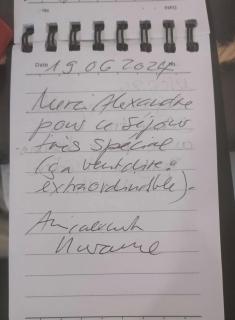 Date 19.06.2024
Merci Alexandre
pour ce séjour
très spécial
(ça veut dire :
extraordinaire).
Amicalement